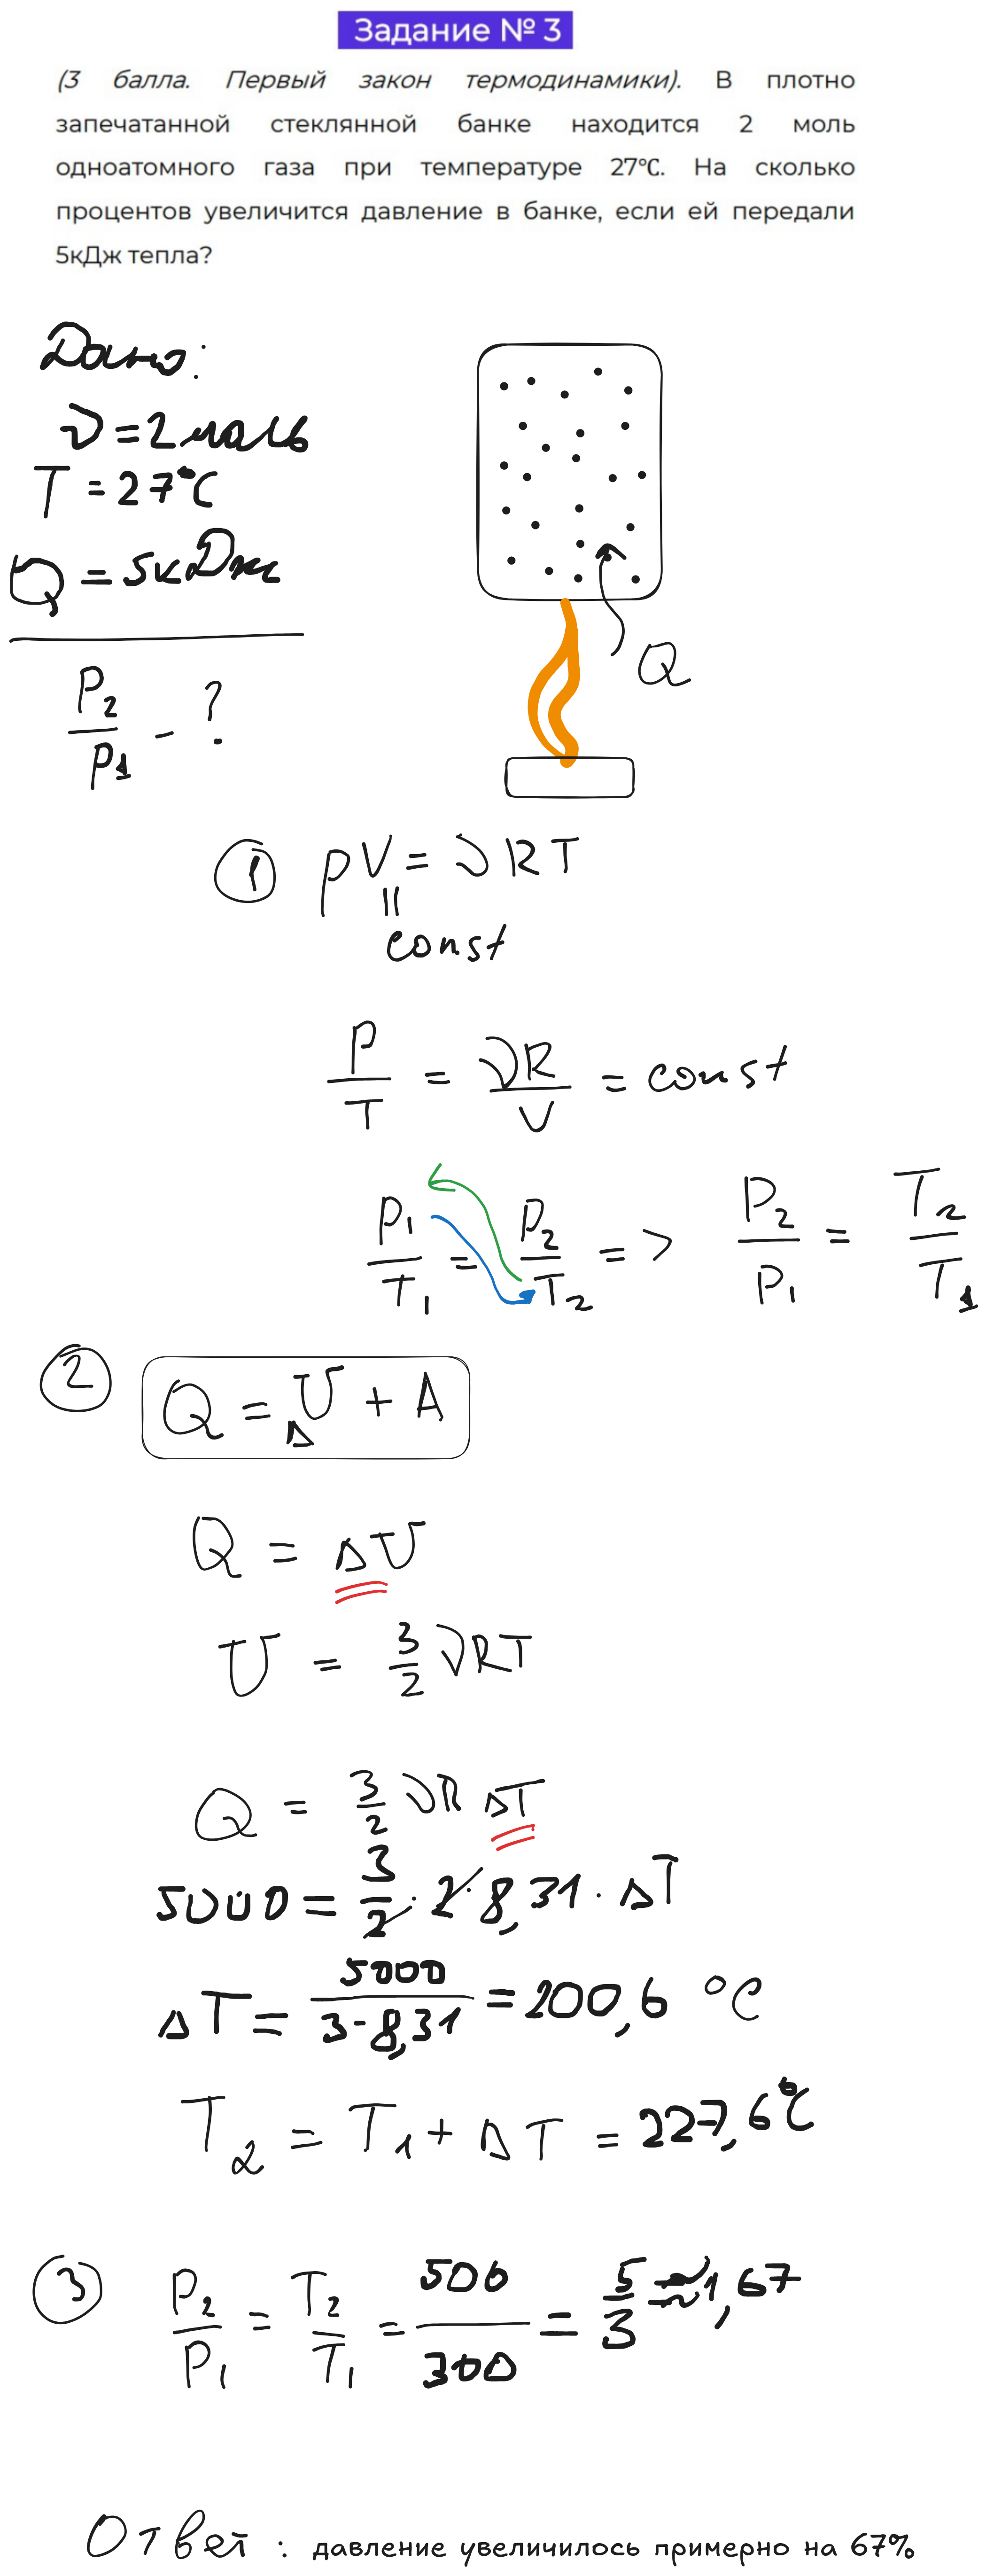 Задание № 3
(3 балла. Первый закон термодинамики). В плотно
запечатанной стеклянной банке находится 2 моль
одноатомного газа при температуре 27℃. На сколько
процентов увеличится давление в банке, если ей передали
5кДж тепла?
Дано:
ν = 2 моль
T = 27°C
Q = 5кДж
P₂/P₁ - ?
Q
① pV = νRT
||
const
P/T = νR/V = const
P₁/T₁ = P₂/T₂ => P₂/P₁ = T₂/T₁
② Q = ΔU + A
Q = ΔU
U = 3/2 νRT
Q = 3/2 νR ΔT
5000 = 3/2 · 2 · 8,31 · ΔT
ΔT = 5000/(3·8,31) = 200,6 °C
T₂ = T₁ + ΔT = 227,6°C
③ P₂/P₁ = T₂/T₁ = 500/300 = 5/3 ≈ 1,67
Ответ : давление увеличилось примерно на 67%